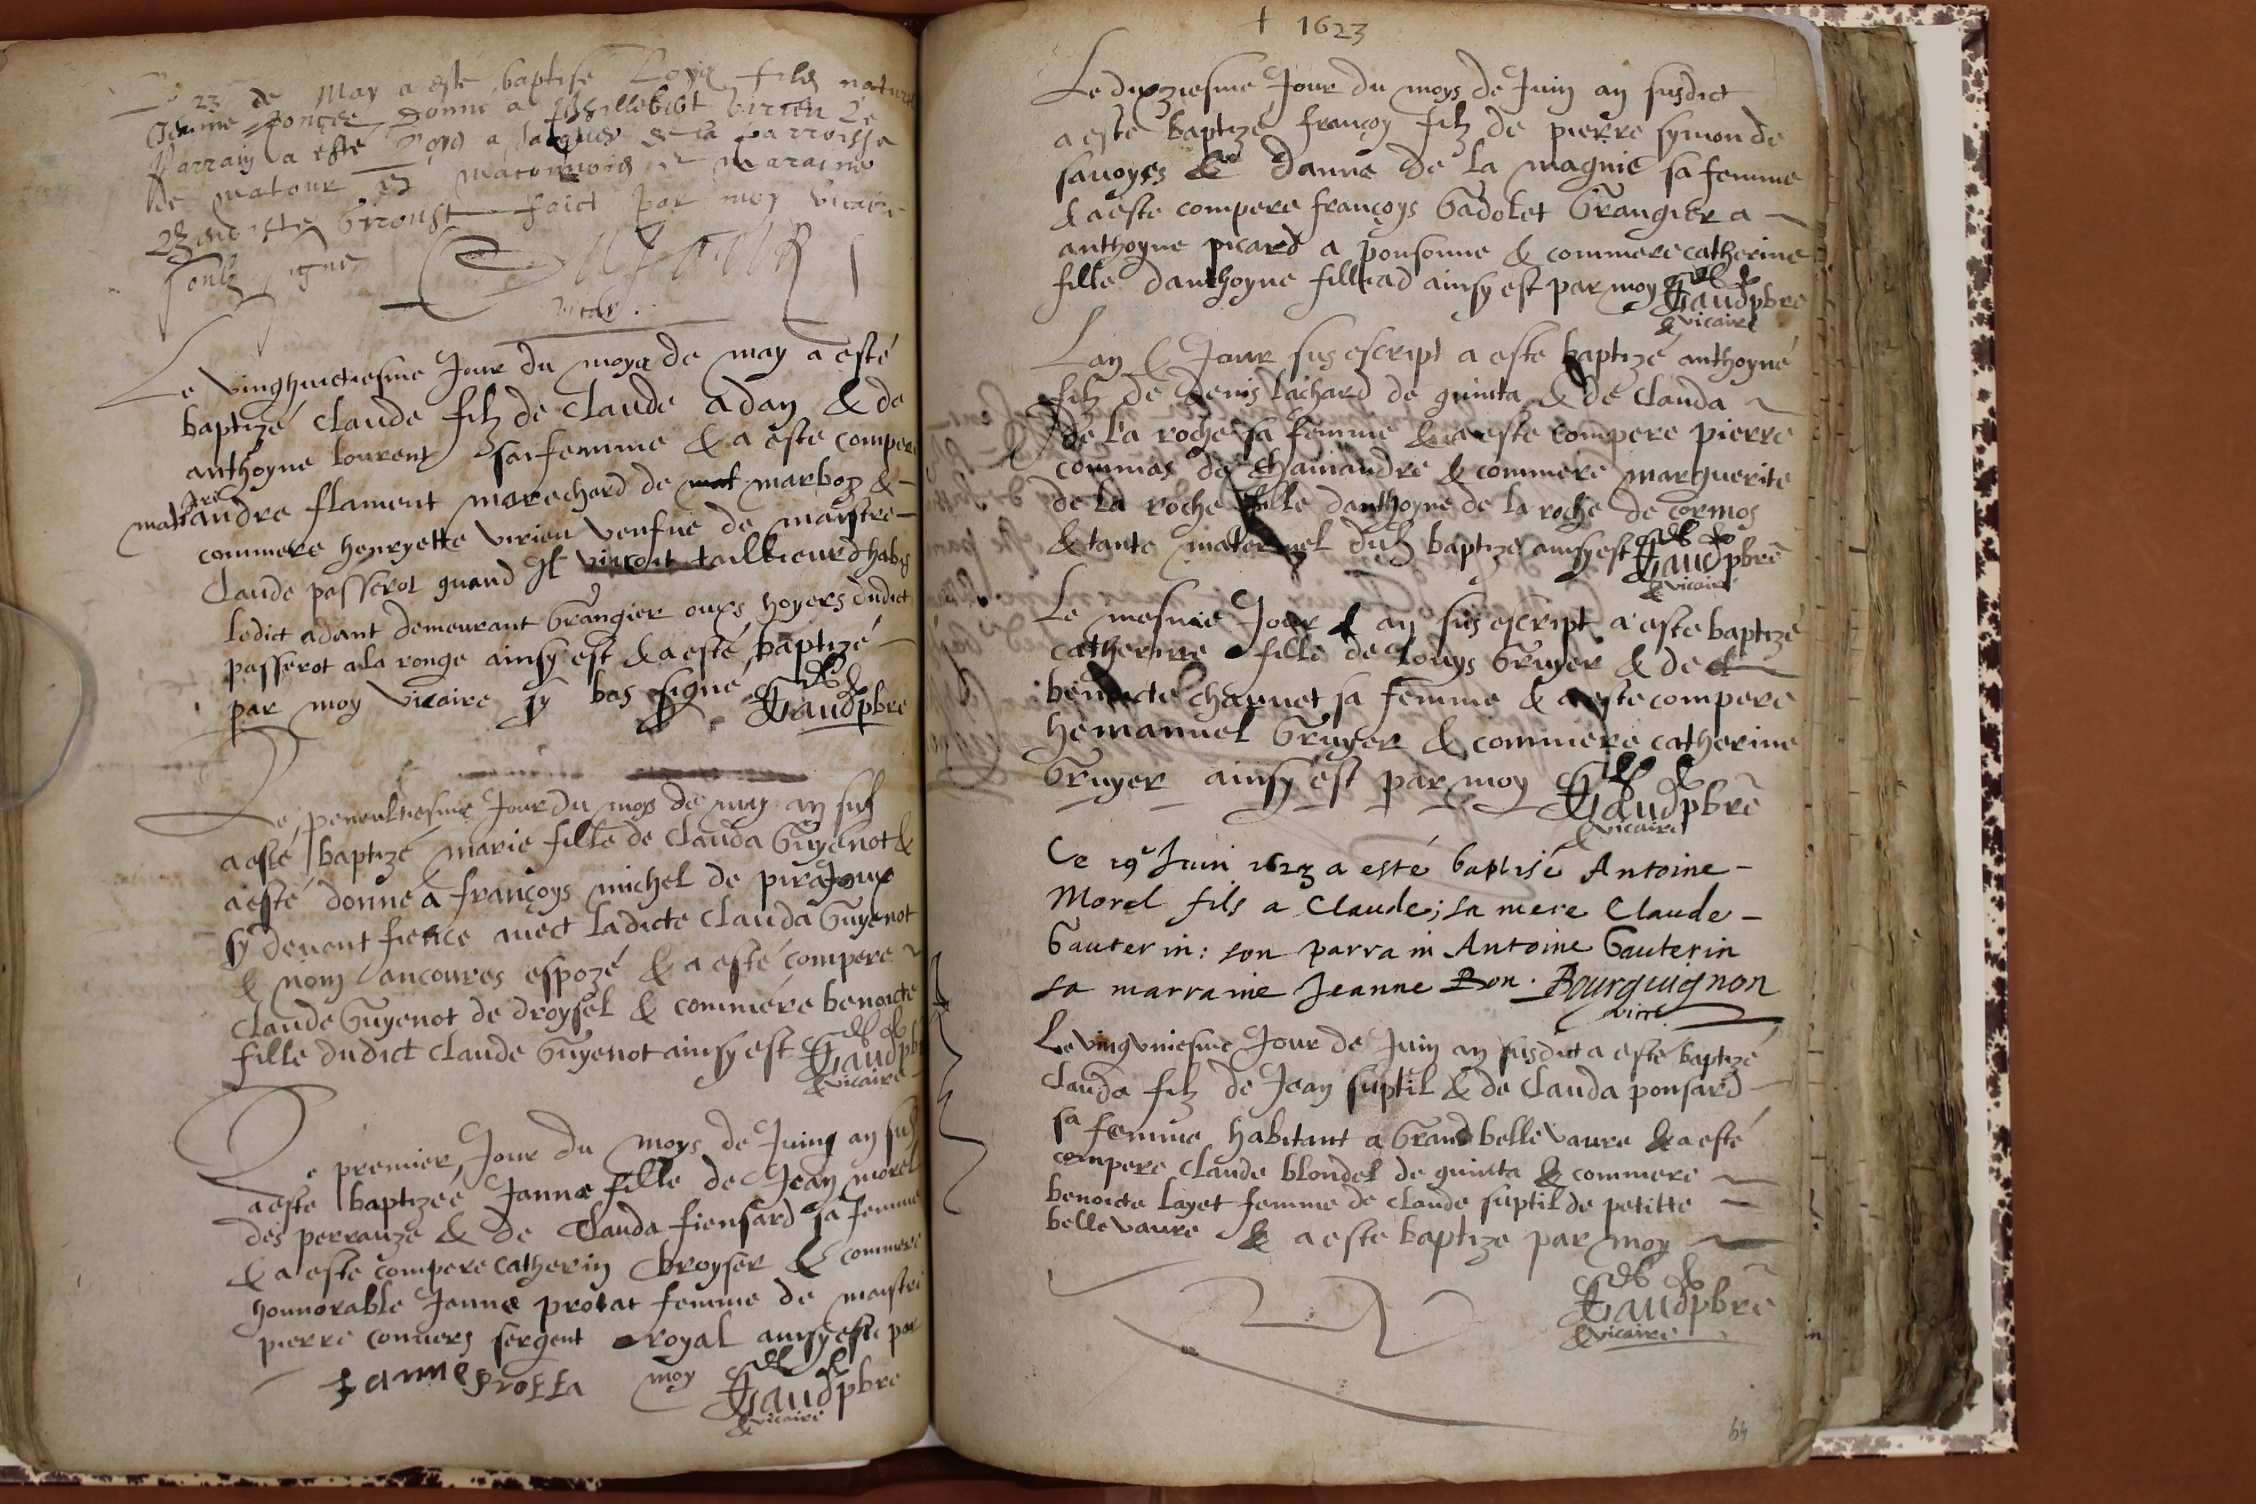 23 de May a esté baptisé Loys filz naturel
donne a
Parrain a esté de la parroisse
de matour
faict par moy vicaire
soubz signé
Le vinghuictiesme Jour du moys de may a esté
baptizé claude filz de claude adan & de
anthoyne lourent sa femme & a este compere
andre flament marechard de marboz &
commere henryette virieu veufue de maystre
claude passerot quand Il viuoit tailleur dhabis
ledict adant demeurant Grangier oulx hoyers dudict
passerot a la ronge ainsy est & a esté baptizé
par moy vicaire sy bas signé Gaud pbre
Le penultiesme Jour du moys de may an susd
a esté baptizé marie fille de clauda Guyenot &
a esté donné a françoys michel de pirajoux
sy deuent fience auect ladicte clauda Guyenot
& nom ancoures espozé & a esté compere
claude Guyenot de droysel & commere benoicte
fille dudict claude Guyenot ainsy est Gaud pbre
& vicaire
Le premier Jour du moys de Juing an susd
a este baptizée Janne fille de Jean morel
des perrauze & de Clauda fiensard sa femme
& a este compere catherin broyser & commere
honnorable Janne protat femme de maistre
pierre conuers sergent royal ainsy este par
Janne protta moy Gaud pbre
& vicaire
† 1623
Le dixziesme Jour du moys de Juin an susdict
a esté baptizé françoy filz de pierre symon de
sauoyes & danne de la magnie sa femme
& a este compere françoys Gadolet Grangier a
anthoyne picard a ponsonne & commere catherine
fille danthoyne filliad ainsy est par moy Gaud pbre
& vicaire
Lan & Jour sus escript a este baptizé anthoyné
filz de denis lachard de guinta & de clauda
de la roche sa femme & a este compere pierre
commas de chauiandre & commere marguerite
de la roche fille danthoyne de la roche de cormos
& tante maternel dud baptizé ainsy est Gaud pbre
& vicaire
Le mesme Jour & an sus escript a este baptizé
catherine fille de louys Gruyer & de
benoicte charnet sa femme & a este compere
hemanuel Gruyer & commere catherine
Gruyer ainsy est par moy Gaud pbre
& vicaire
Ce 19e Juin 1623 a esté baptisé Antoine
Morel fils a Claude; sa mere Claude
Gauterin: son parrain Antoine Gauterin
sa marraine Jeanne Bon. Bourguignon
vicre
Le vingvniesme Jour de Juin an susdict a esté baptizé
Clauda filz de Jean suptil & de Clauda ponsard
sa femme habitant a Grand belleuaure & a esté
compere claude blondel de guinta & commere
benoicte layet femme de claude suptil de petitte
belleuaure & a este baptize par moy
Gaud pbre
& vicaire
64